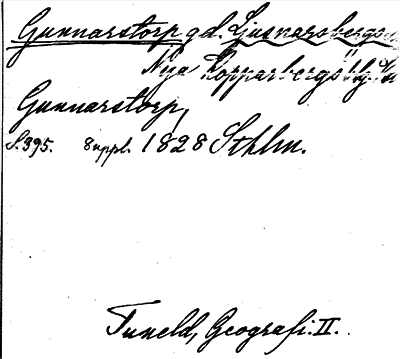 Gunnarstorp gd. Ljusnarsbergs
Nya Kopparbergs bg.
Gunnarstorp,
S. 395. 8 uppl. 1828 Sthlm.
Tuneld, Geografi. II.